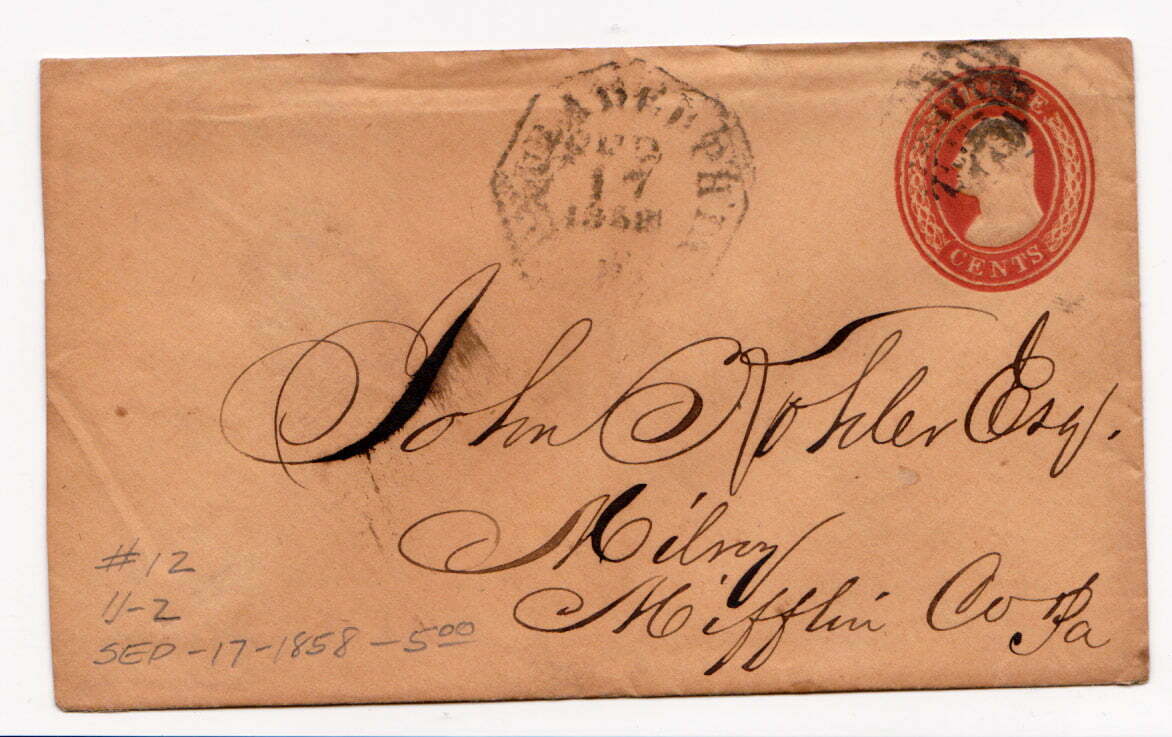 PHILADELPHIA
SEP
17
1858
THREE
CENTS
John Kohler Esq.
Milroy
Mifflin Co Pa
#12
U-2
SEP-17-1858-5.00